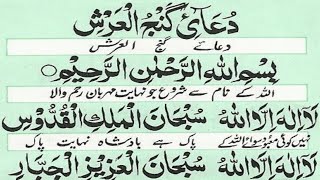 دُعَائے گَنْجُ الْعَرْش
دعائے گنج العرش
بِسْمِ اللهِ الرَّحْمٰنِ الرَّحِيْمِ
اللہ کے نام سے شروع جو نہایت مہربان رحم والا
لَا اِلٰهَ اِلَّا اللهُ سُبْحَانَ الْمَلِكِ الْقُدُّوْسِ
نہیں کوئی معبود سوائے اللہ کے پاک ہے بادشاہ نہایت پاک
لَا اِلٰهَ اِلَّا اللهُ سُبْحَانَ الْعَزِيْزِ الْجَبَّارِ